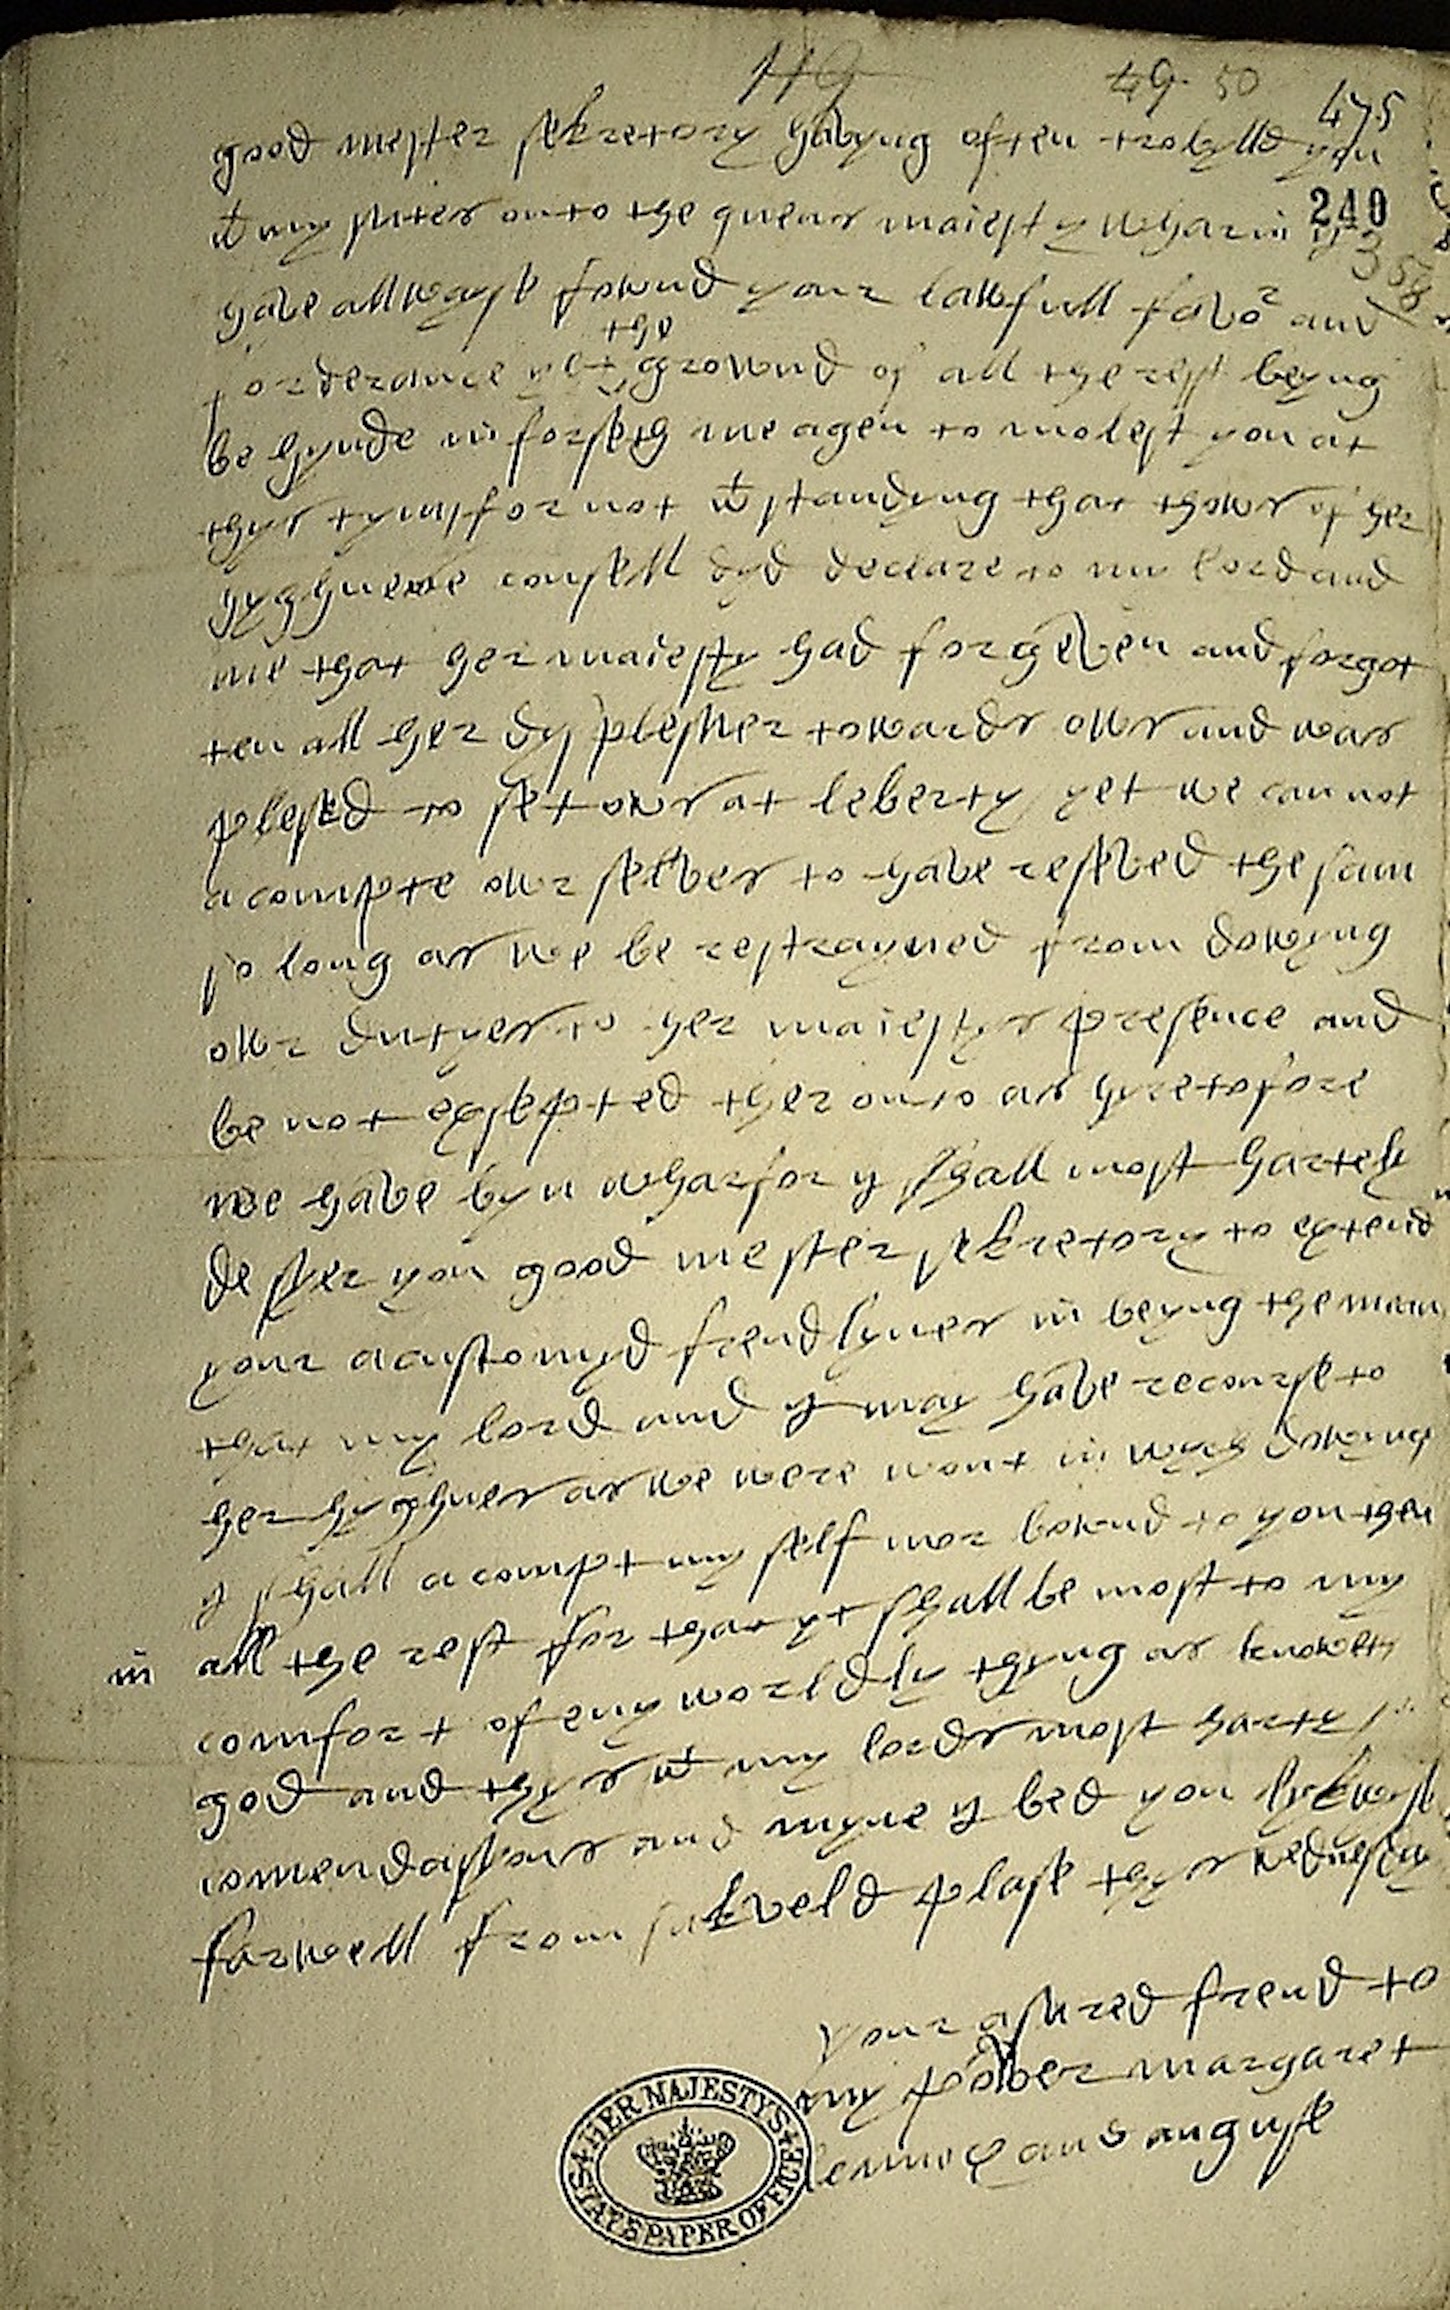 119 49. 50 475
good mester sekretory havyng often trobylld you
wt my suters onto the quens maiesty wharin y
240
358
have allwayse fownd your lawfull favor and
forderance yet the grownd of all the rest beyng
be hynde inforseth me agen to molest you at
thys tyms for not wt standyng that thows of her
hyghnese consell dyd declare to my lord and
me that her maiesty had forgeven and forgot
ten all her dysplesuer towards ows and was
plesed to set ows at leberty yet we can not
acompte owr selves to have reseved the sam
so long as we be restrayned from dowyng
owr dutyes to her maiestys presence and
be not exsepted ther onto as hyretofore
we have byn wharfor y shall most hartely
desyer you good mester sekretory to extend
your acustomyd frendlynes in beyng the mean
that my lord and y may have recourse to
her hyghnes as we were wont in wych dowyng
y shall acompt my self mor bownd to you then
in all the rest for that yt shall be most to my
comfort of eny worldly thyng as knoweth
god and thys wt my lords most harty
comendasyons and myne y bed you lykwyse
farwell from sakveld plase thys wednesday
your asured frend to
my power margaret
lennox and anguse
HER MAJESTYS STATE PAPER OFFICE